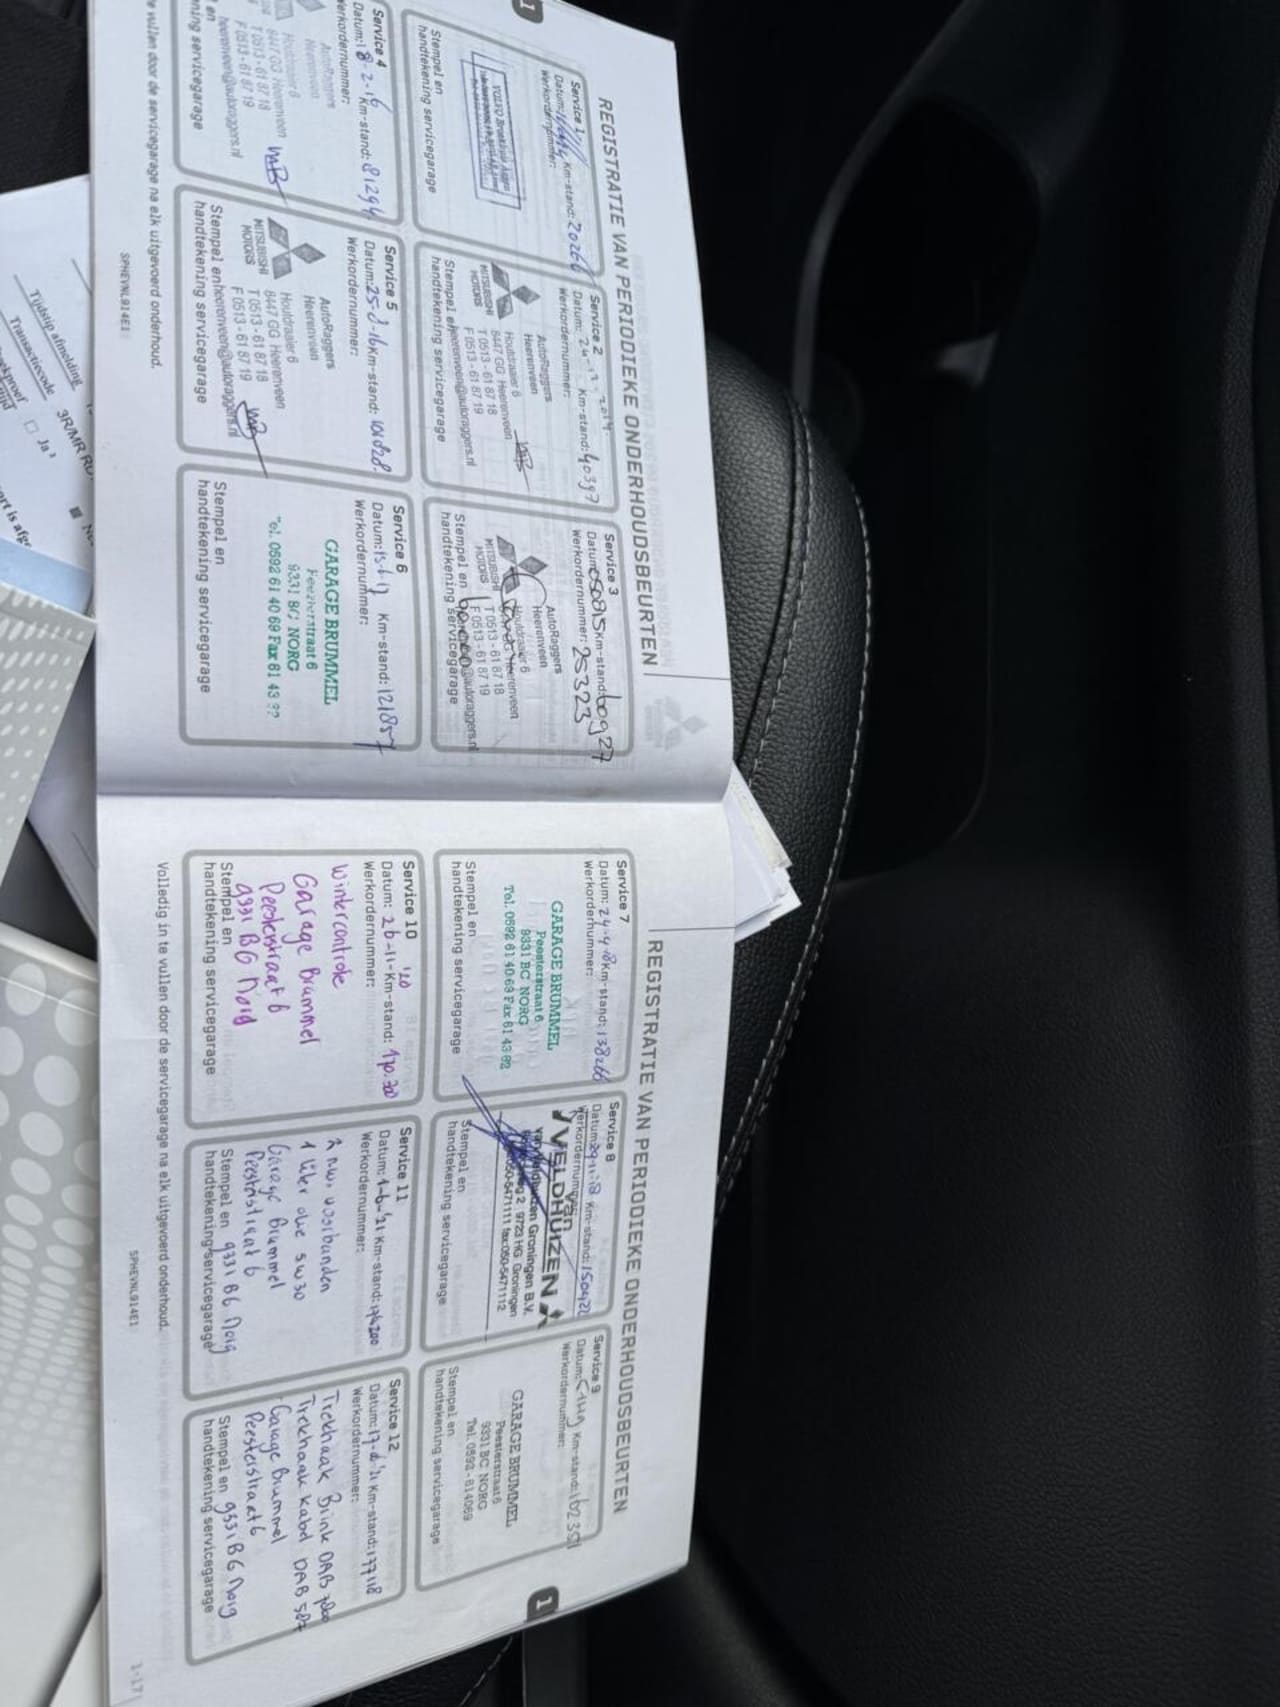 REGISTRATIE VAN PERIODIEKE ONDERHOUDSBEURTEN
Service 1
Datum: Km-stand: 20266
Werkordernummer:
VOLVO Broekhuis
Stempel en
handtekening servicegarage
Service 2
Datum: 24- 2014 Km-stand: 40397
Werkordernummer:
AutoRaggers
Heerenveen
Houtdraaier 6
8447 GG Heerenveen
T 0513 - 61 87 18
F 0513 - 61 87 19
heerenveen@autoraggers.nl
MITSUBISHI
MOTORS
Stempel en
handtekening servicegarage
Service 3
Datum: 050815 Km-stand: 60927
Werkordernummer: 25323
AutoRaggers
Heerenveen
Houtdraaier 6
Heerenveen
T 0513 - 61 87 18
F 0513 - 61 87 19
@autoraggers.nl
MITSUBISHI
MOTORS
Stempel en
handtekening servicegarage
Service 4
Datum: 18-2-16 Km-stand: 81294
Werkordernummer:
AutoRaggers
Heerenveen
Houtdraaier 6
8447 GG Heerenveen
T 0513 - 61 87 18
F 0513 - 61 87 19
heerenveen@autoraggers.nl
en
ening servicegarage
Service 5
Datum: 25-8-16 Km-stand: 101028
Werkordernummer:
AutoRaggers
Heerenveen
Houtdraaier 6
8447 GG Heerenveen
T 0513 - 61 87 18
F 0513 - 61 87 19
heerenveen@autoraggers.nl
MITSUBISHI
MOTORS
Stempel en
handtekening servicegarage
Service 6
Datum: 15-6-17 Km-stand: 121857
Werkordernummer:
GARAGE BRUMMEL
Peesterstraat 6
9331 BC NORG
Tel. 0592 61 40 69 Fax 61 43
Stempel en
handtekening servicegarage
te vullen door de servicegarage na elk uitgevoerd onderhoud.
SPHEVNL914E1
REGISTRATIE VAN PERIODIEKE ONDERHOUDSBEURTEN
Service 7
Datum: 24-4-18 Km-stand: 138266
Werkordernummer:
GARAGE BRUMMEL
Peesterstraat 6
9331 BC NORG
Tel. 0592 61 40 69 Fax 61 43 92
Stempel en
handtekening servicegarage
Service 8
Datum: 29-11-18 Km-stand: 150422
Werkordernummer:
van
VELDHUIZEN
van Veldhuizen Groningen B.V.
2 9723 HG Groningen
050-5471111 fax:050-5471112
Stempel en
handtekening servicegarage
Service 9
Datum: Km-stand: 162351
Werkordernummer:
GARAGE BRUMMEL
Peesterstraat 6
9331 BC NORG
Tel. 0592 - 614069
Stempel en
handtekening servicegarage
Service 10
Datum: 26-11-'20 Km-stand: 170.30
Werkordernummer:
wintercontrole
Garage Brummel
Peesterstraat 6
9331 BG Norg
Stempel en
handtekening servicegarage
Service 11
Datum: 1-6-'21 Km-stand: 174200
Werkordernummer:
2 nw. voorbanden
1 liter olie 5W30
Garage Brummel
Peesterstraat 6
9331 BG Norg
Stempel en
handtekening servicegarage
Service 12
Datum: 17-6-'21 Km-stand: 177118
Werkordernummer:
Trekhaak Brink DAB 7200
Trekhaak kabel DAB 587
Garage Brummel
Peesterstraat 6
9331 BG Norg
Stempel en
handtekening servicegarage
Volledig in te vullen door de servicegarage na elk uitgevoerd onderhoud.
SPHEVNL914E1
1-17
1
1
Tijdstip afmelding
Transactiecode
3R/MR
Ja